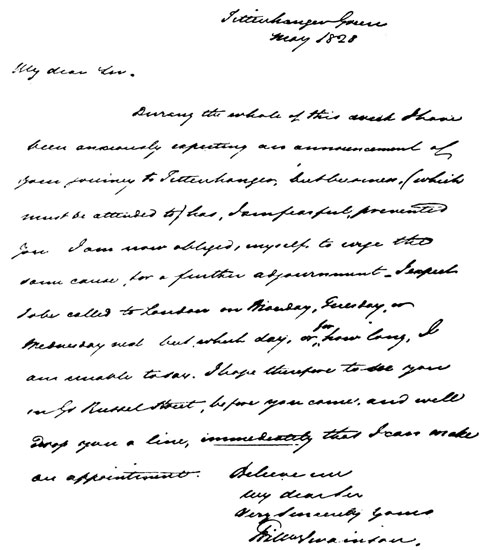 Tittenhanger Green
May 1828
My dear Sir.
During the whole of this week I have
been anxiously expecting an announcement of
your journey to Tittenhanger, but business, (which
must be attended to) has, I am fearful, prevented
you I am now obliged, myself to urge the
same cause, for a further adjournment – I expect
to be called to London on Monday, Tuesday, or
Wednesday next but which day, or, for how long, I
am unable to say. I hope therefore to see you
in Gt Russel Street, before you come, and will
drop you a line, immediately that I can make
an appointment. Believe me
My dear Sir
Very Sincerely Yours
Willm Swainson.